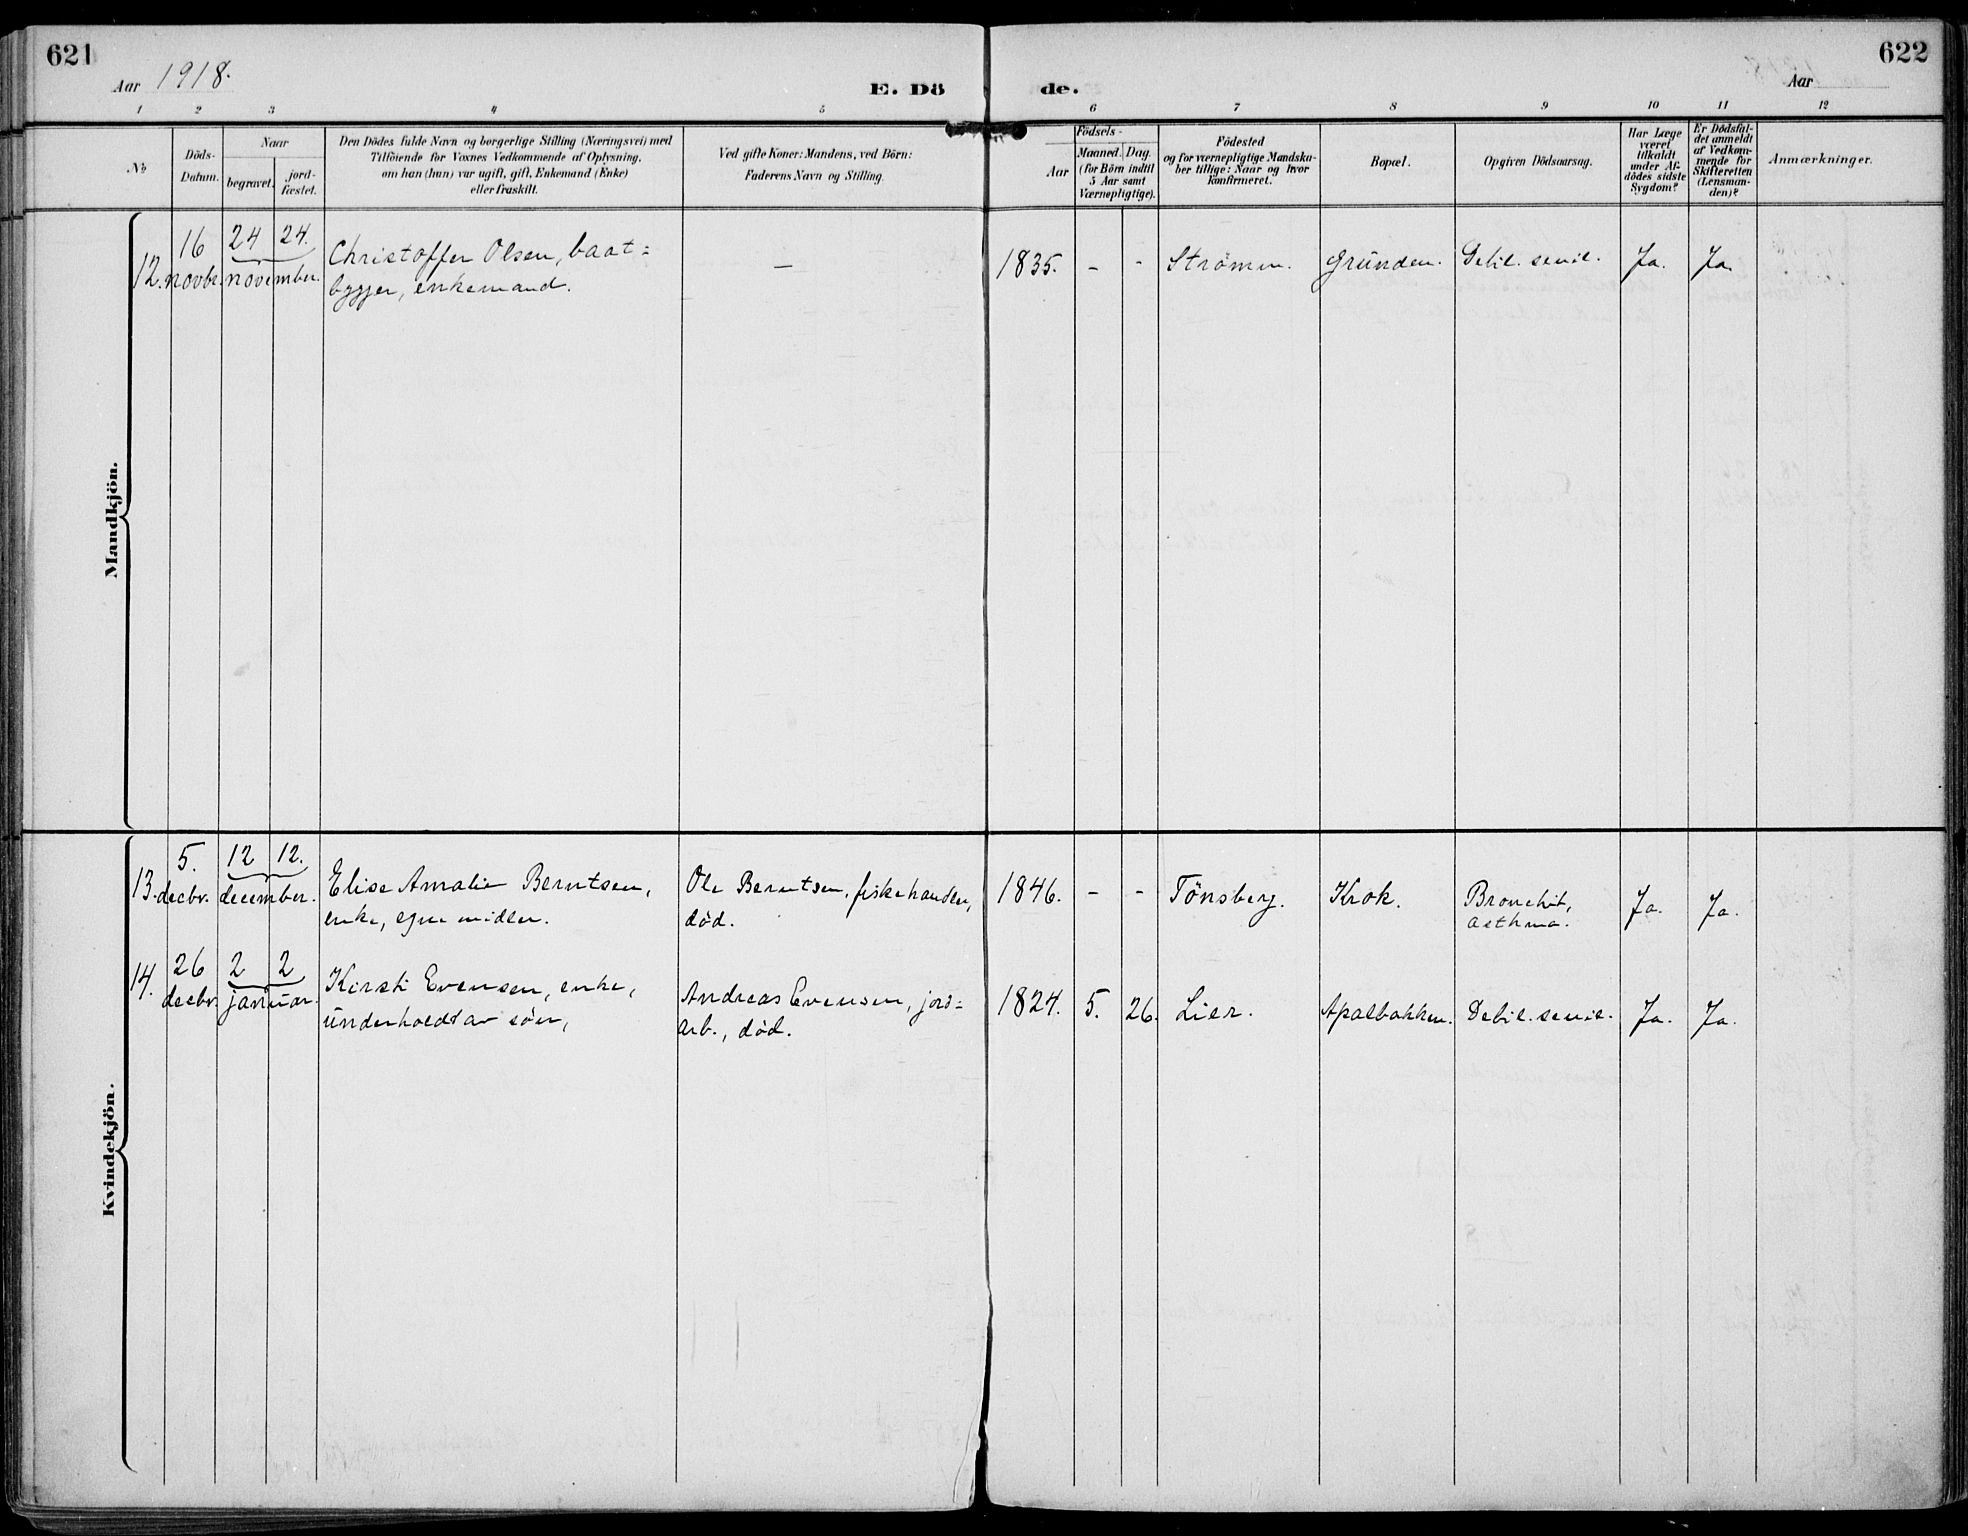 621
622
Aar 1918.
E. Dö
de.
Aar
1 2 3 4 5 6 7 8 9 10 11 12
No
Döds-
Datum.
Naar
begravet.
jord-
fæstet.
Den Dödes fulde Navn og borgerlige Stilling (Næringsvei) med
Tilföiende for Voxnes Vedkommende af Oplysning,
om han (hun) var ugift, gift, Enkemand (Enke)
eller fraskilt.
Ved gifte Koner: Mandens, ved Börn:
Faderens Navn og Stilling.
Födsels-
Aar
Maaned. Dag.
(for Börn indtil
5 Aar samt
Værnepligtige).
Födested
og for værnepligtige Mandska-
ber tillige: Naar og hvor
konfirmeret.
Bopæl.
Opgiven Dödsaarsag.
Har Læge
været
tilkaldt
under Af-
dödes sidste
Sygdom?
Er Dödsfal-
det anmeldt
af Vedkom-
mende for
Skifteretten
(Lensman-
den)?
Anmærkninger.
Mandkjön.
12. 16 novbr. 24 24. november. Christoffer Olsen, baat=
bygger, enkemand.
—
1835. - - Strömm. Grunden. Debil. senil. Ja. Ja.
Kvindekjön.
13. 5. decbr. 12 12. december. Elise Amalie Berntsen,
enke, egne midler.
Ole Berntsen, fiskehandler,
död.
1846. - - Tönsberg. Krok. Bronchit,
asthma.
Ja. Ja.
14. 26 decbr. 2 2 januar. Kirsti Evensen, enke,
underholdt av sön,
Andreas Evensen, jord=
arb., död.
1824. 5. 26. Lier. Apalbakken. Debil. senil. Ja. Ja.